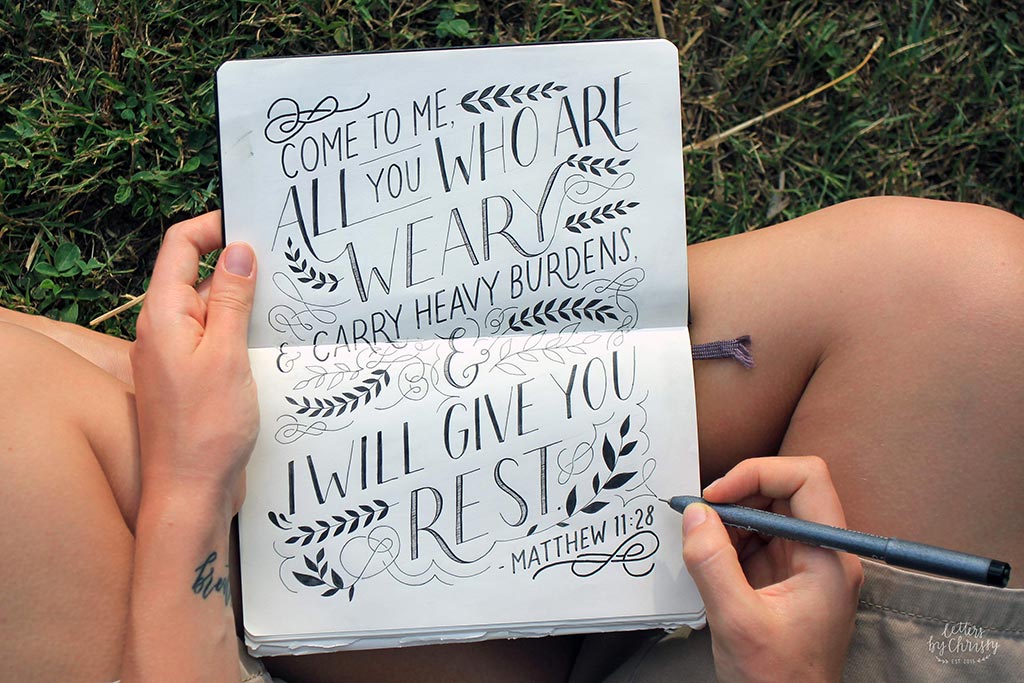 COME TO ME,
ALL YOU WHO ARE
WEARY
& CARRY HEAVY BURDENS,
&
I WILL GIVE YOU
REST.
- MATTHEW 11:28
letters
by Chrissy
EST. 2015